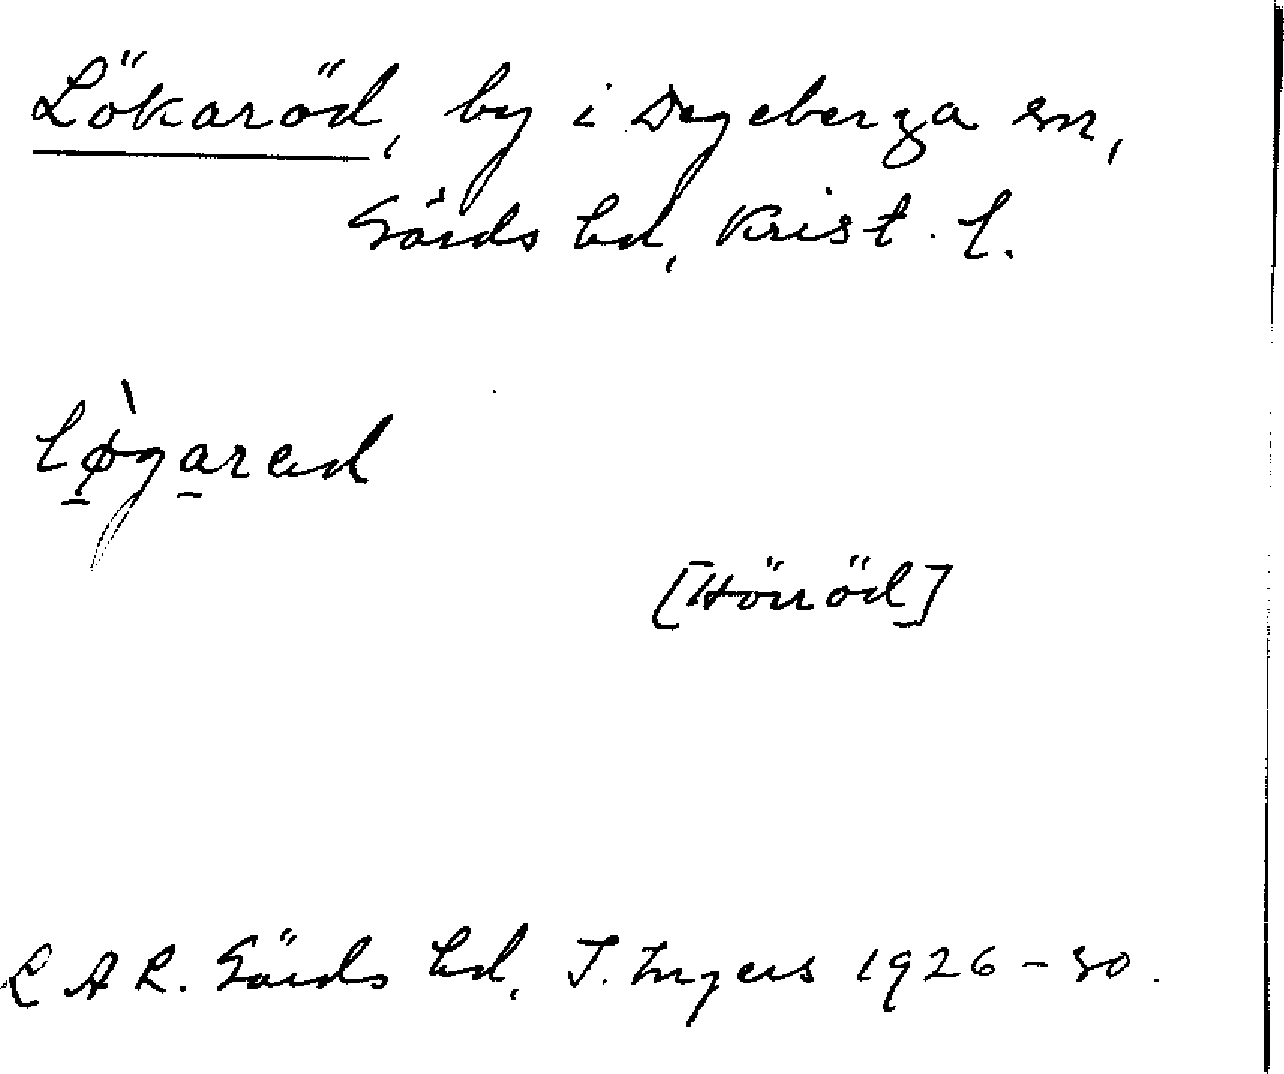 Lökaröd, by i Degeberga sn,
Gärds hd, Krist. l.
lø̀garad
[Hörröd]
L A R. Gärds hd, I. Ingers 1926-30.